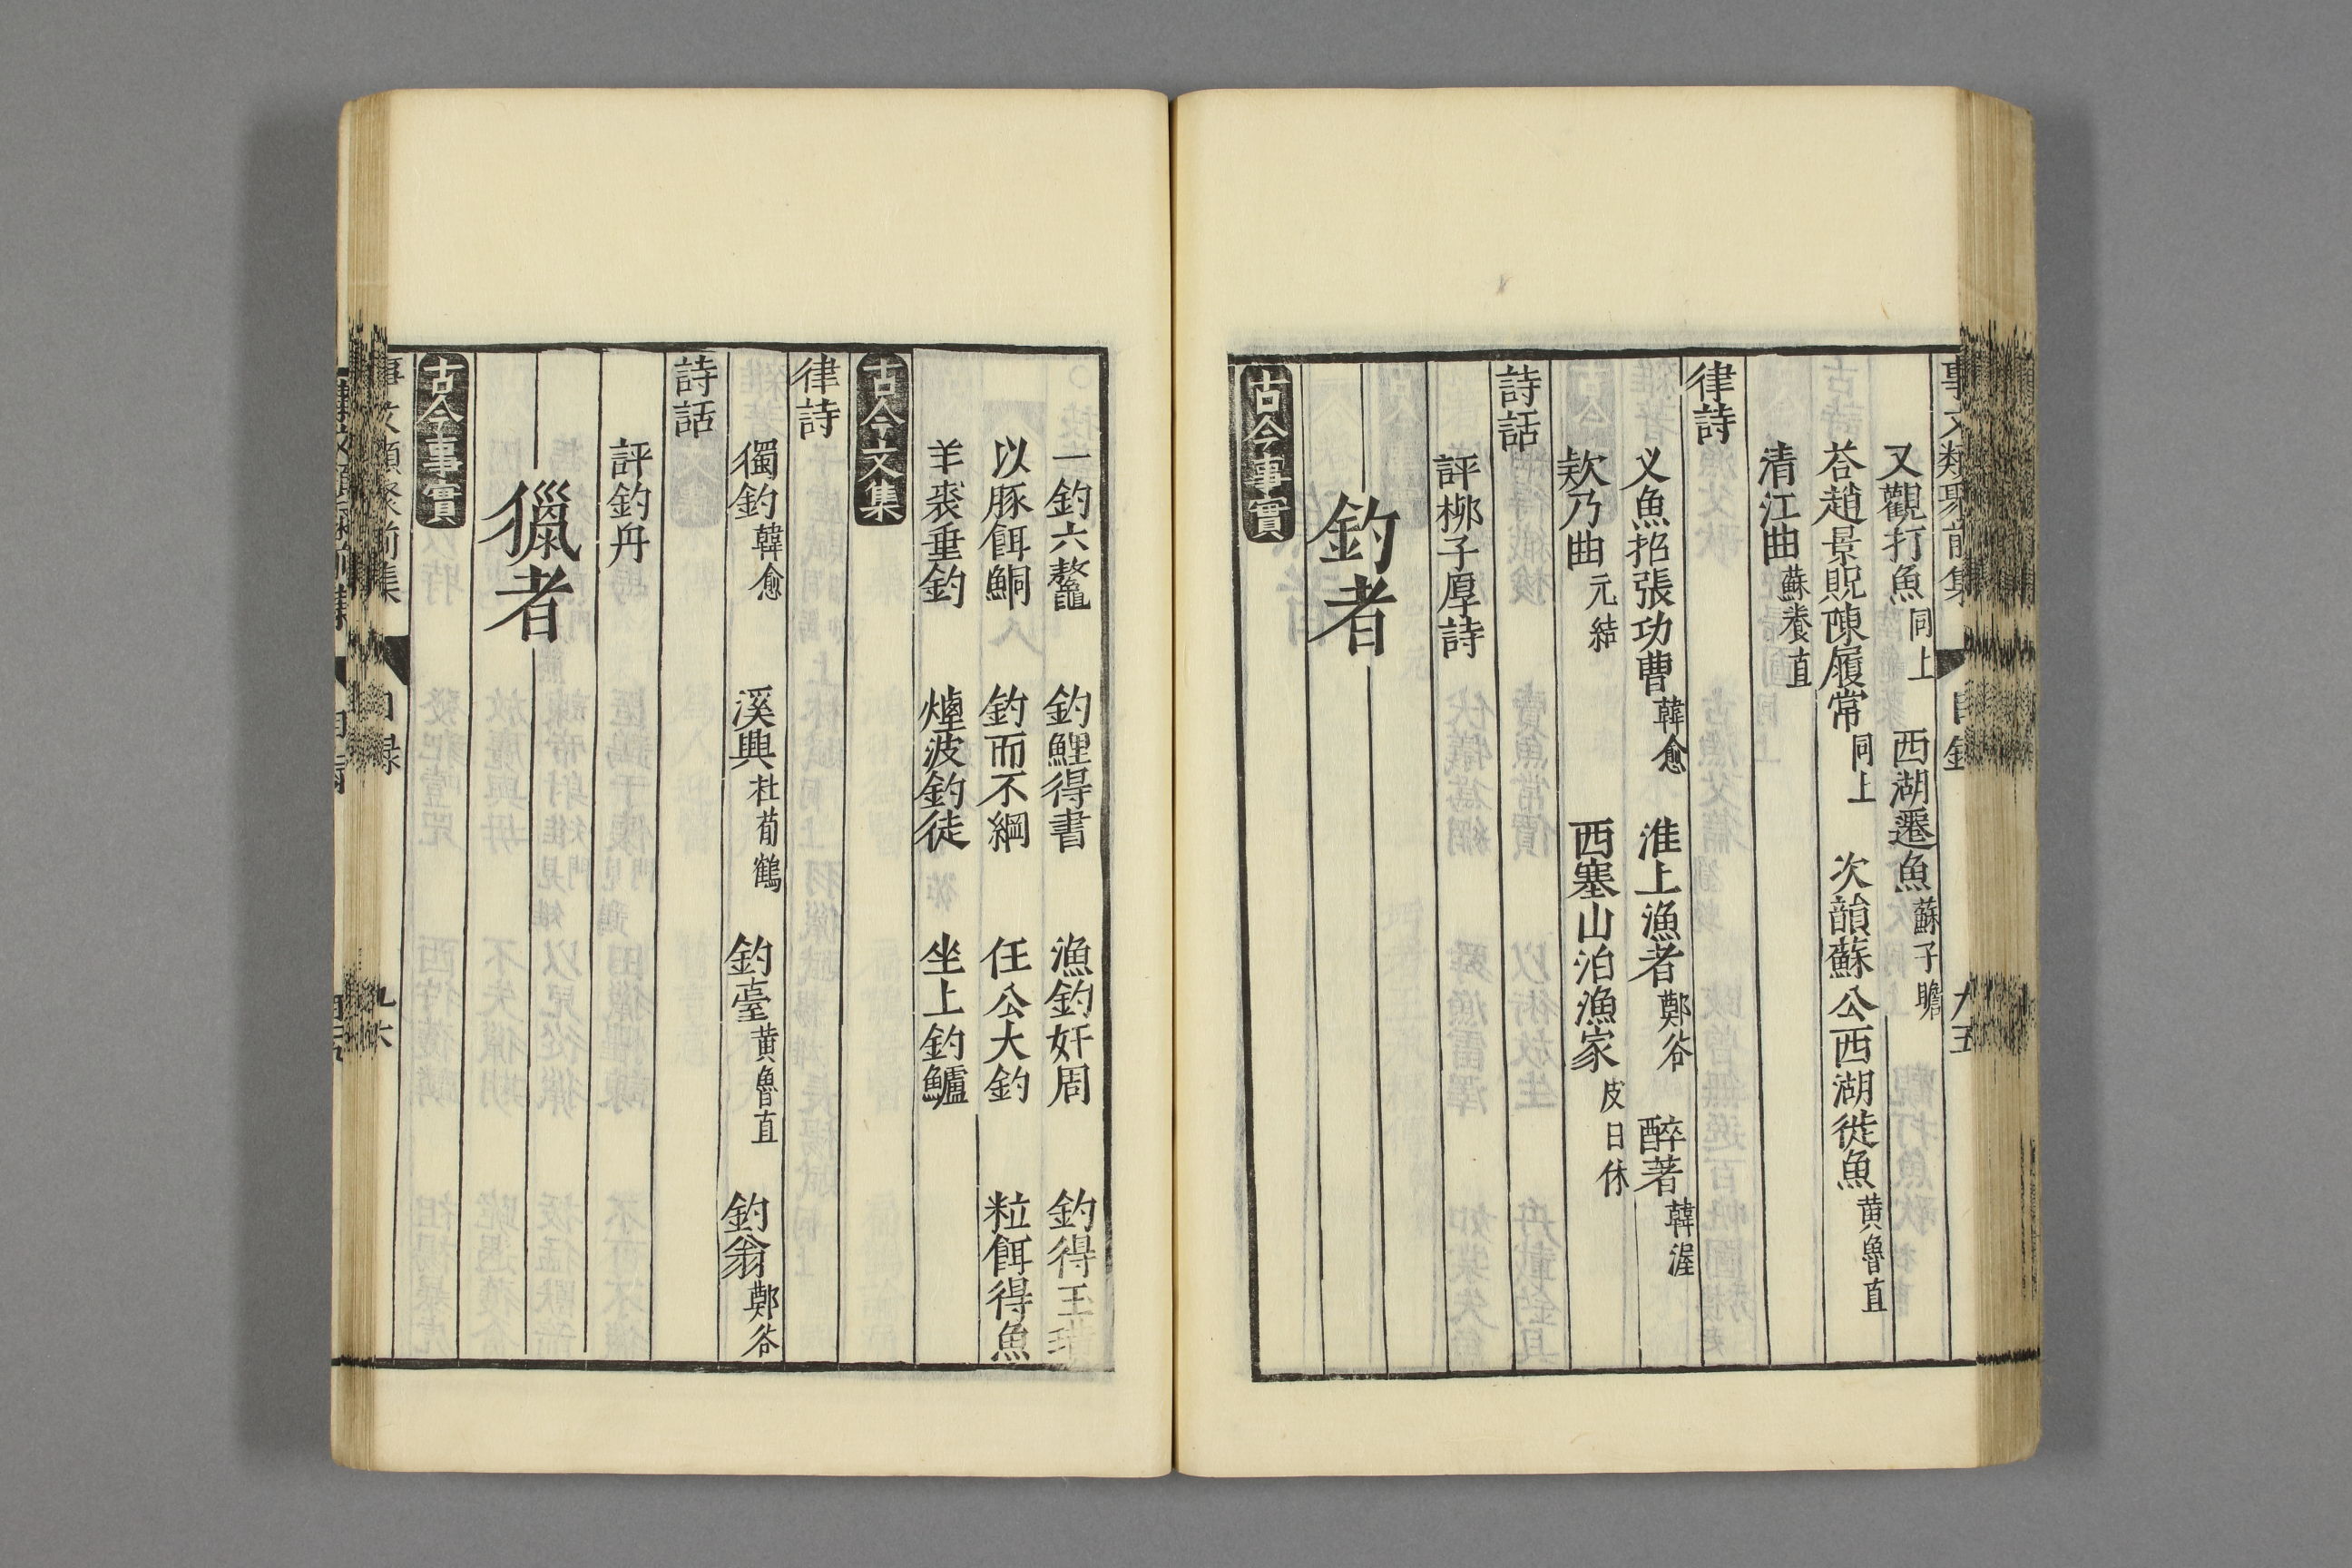 事文類聚前集 目錄 九五
又觀打魚同上 西湖遷魚蘇子瞻
荅趙景貺陳履常同上 次韻蘇公西湖徙魚黄魯直
清江曲蘇養直
律詩
叉魚招張功曹韓愈 淮上漁者鄭谷 醉著韓渥
欸乃曲元結 西塞山泊漁家皮日休
詩話
評柳子厚詩
釣者
古今事實
一釣六鼇 釣鯉得書 漁釣奸周 釣得玉璜
以豚餌鮦 釣而不綱 任公大釣 粒餌得魚
羊裘垂釣 煙波釣徒 坐上釣鱸
古今文集
律詩
獨釣韓愈 溪興杜荀鶴 釣臺黄魯直 釣翁鄭谷
詩話
評釣丹
獵者
古今事實
事文類聚前集 目録 九六